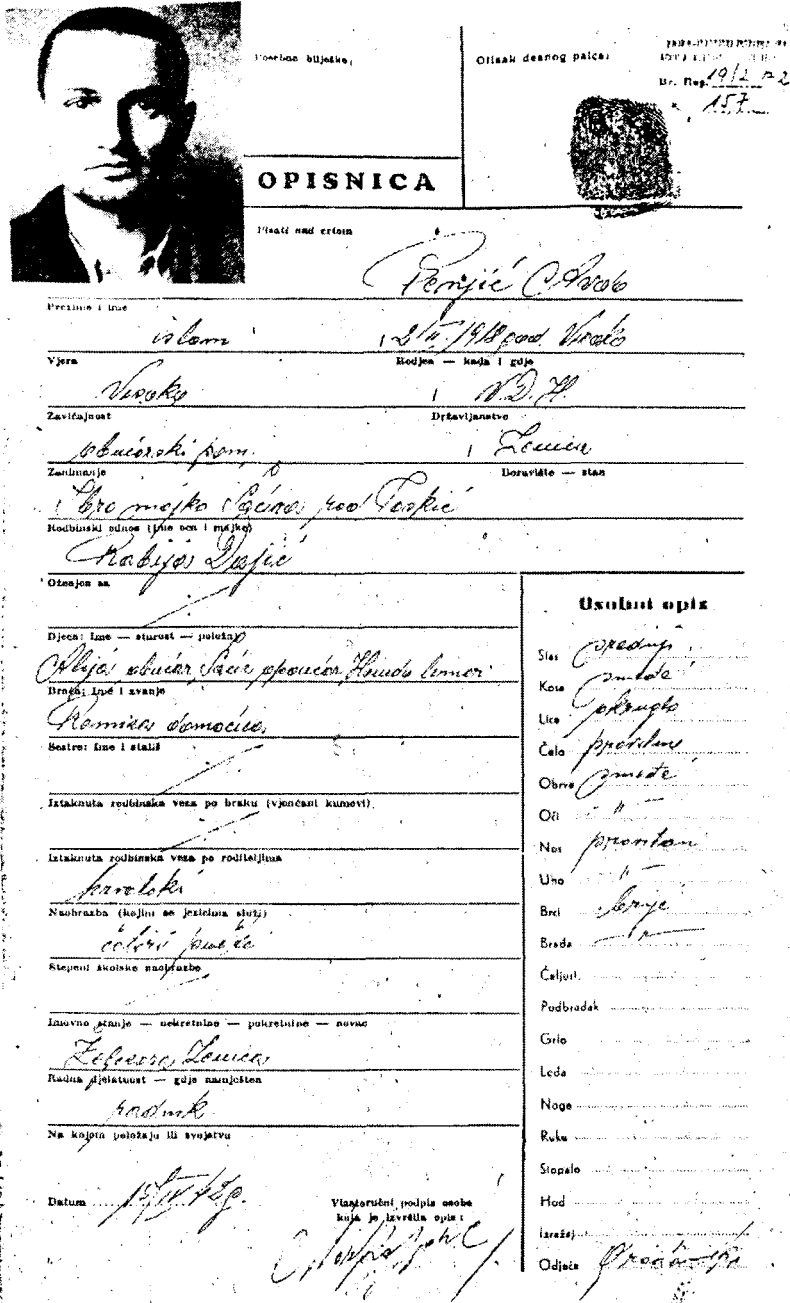 Posebne bilješke:
Otisak desnog palca:
Br. Reg. 19/2
157
OPISNICA
Pisati nad crtom
Avdo
Prezime i ime
islam
1918 god. Visoko
Vjera
Rodjen — kada i gdje
Visoko
N.D.H.
Zavičajnost
Državljanstvo
obućarski pom.
Zenica
Zanimanje
Boravište — stan
Ibro majka Saćira rod
Rodbinski odnos (ime oca i majke)
Rabija
Oženjen sa
Djeca: Ime — starost — položaj
Alija obućar, limar
Braća: Ime i zvanje
Ramiza domaćica
Sestre: Ime i stališ
Iztaknuta rodbinska veza po braku (vjenčani kumovi)
Iztaknuta rodbinska veza po roditeljima
hrvatski
Naobrazba (kojim se jezicima služi)
Stepeni školske naobrazbe
Imovno stanje — nekretnine — pokretnine — novac
Željezara Zenica
Radna djelatnost — gdje namješten
radnik
Na kojem položaju ili svojstvu
Datum 42 g.
Vlastoručni podpis osobe
koja je izvršila opis:
Osobni opis
Stas srednji
Kosa smeđa
Lice okruglo
Čelo pravilno
Obrve smeđe
Oči "
Nos pravilan
Uho "
Brci brije
Brada "
Čeljust
Podbradak
Grlo
Leđa
Noge
Ruke
Stopalo
Hod
Izražaj
Odjeća građanska